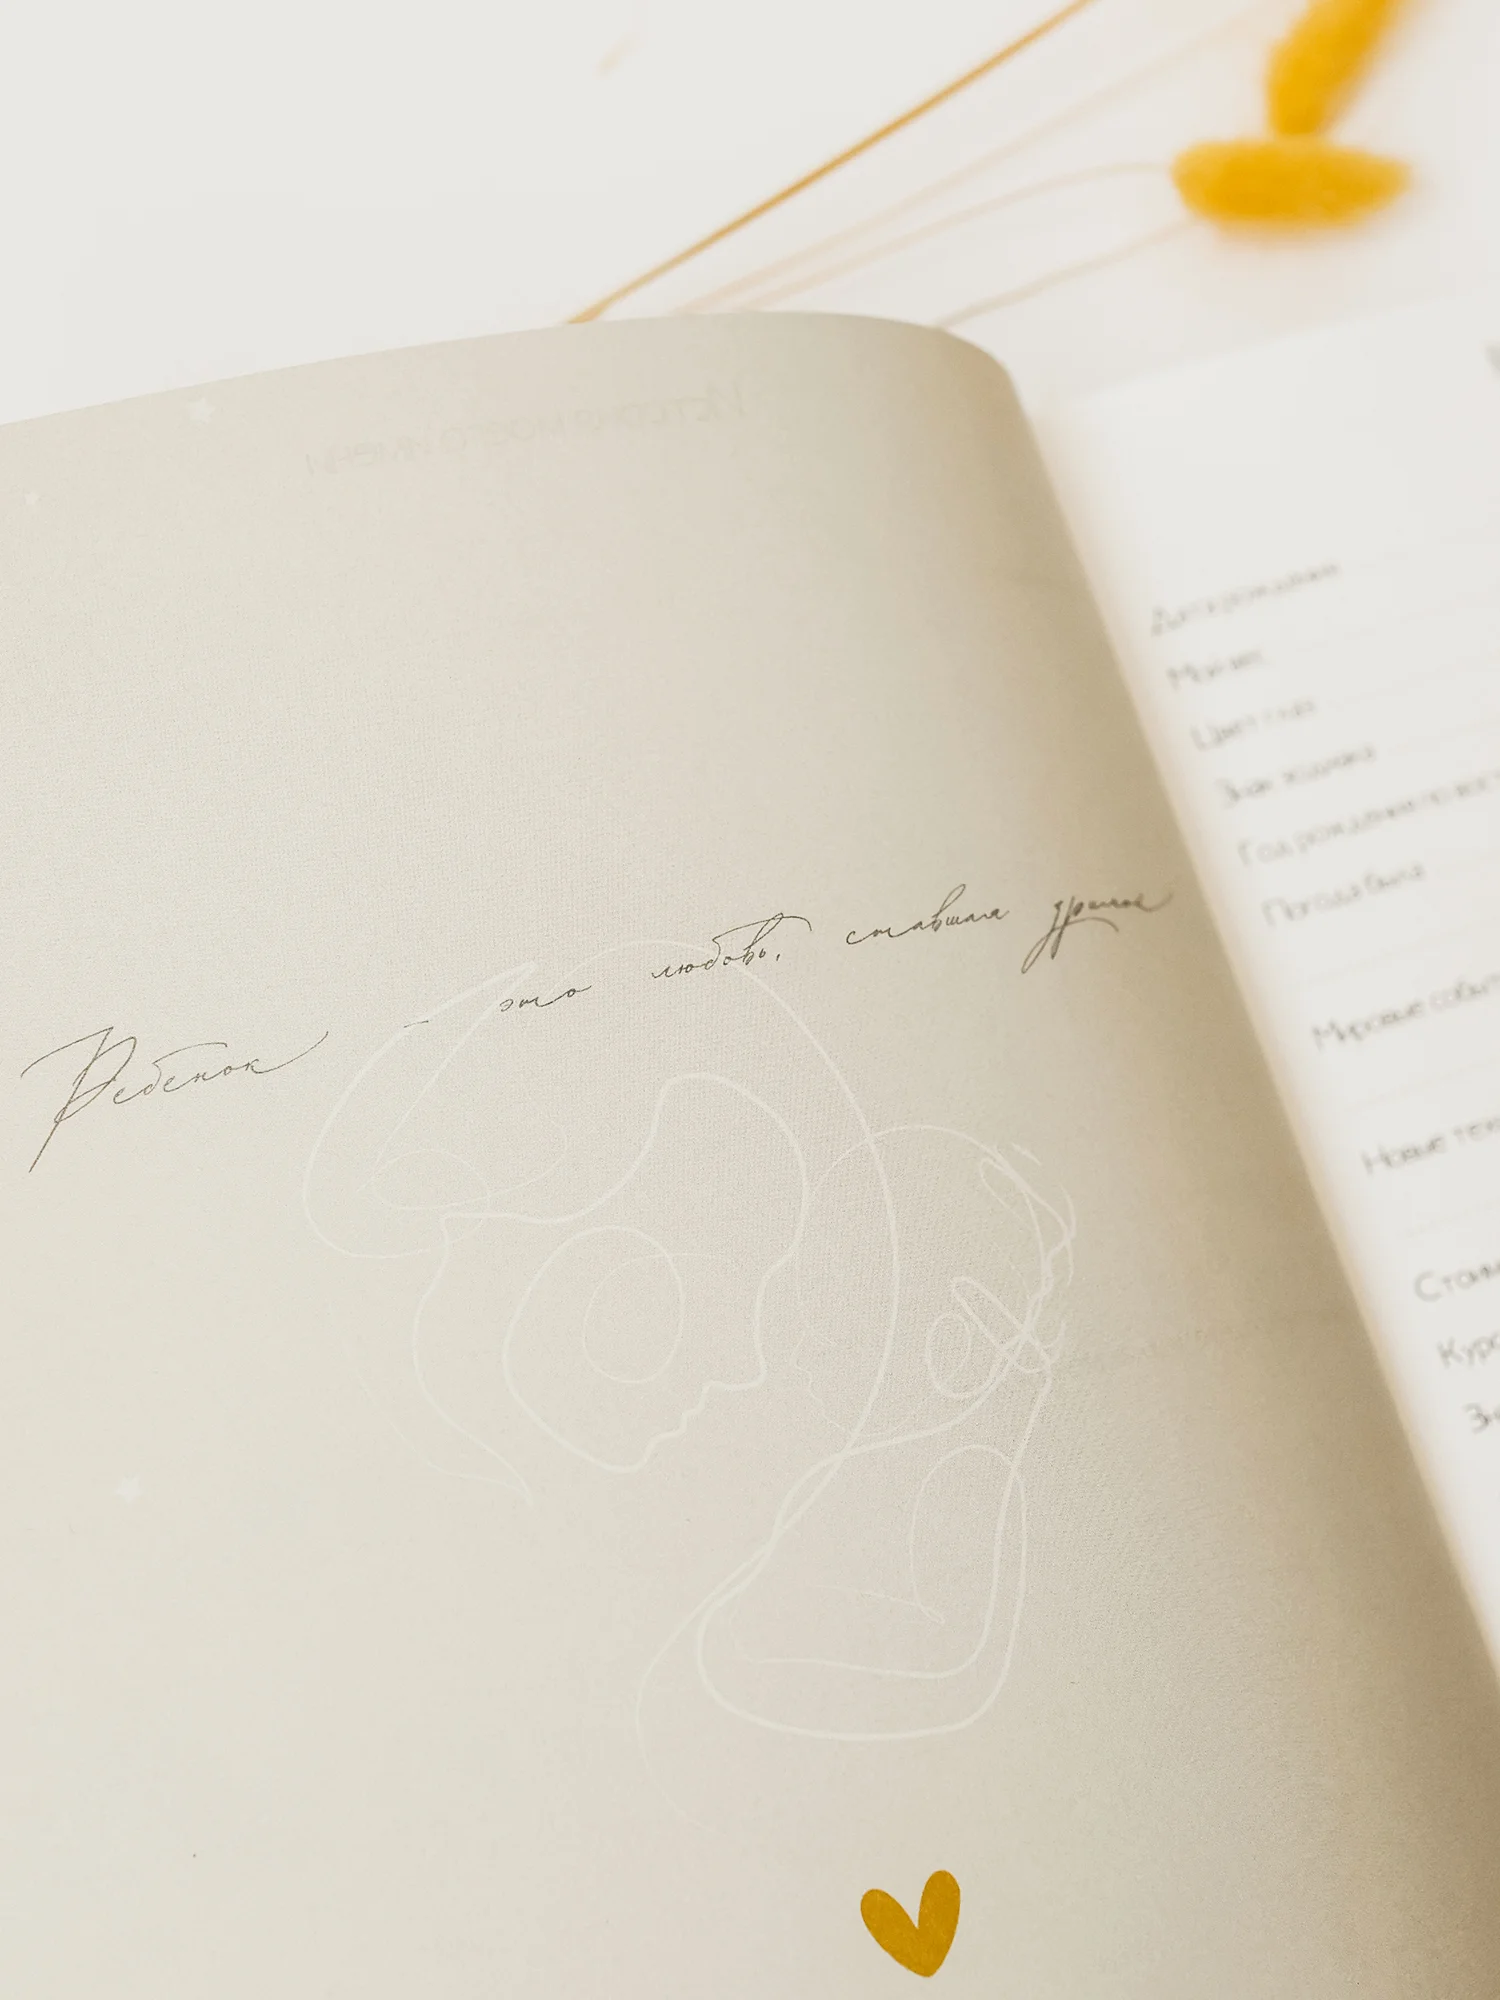 Ребенок - это любовь, ставшая зримой
История моего имени
Дата рождения
Мой вес
Цвет глаз
Знак зодиака
Год рождения по вост
Погода была
Мировые событ
Новые тех
Стоим
Курс